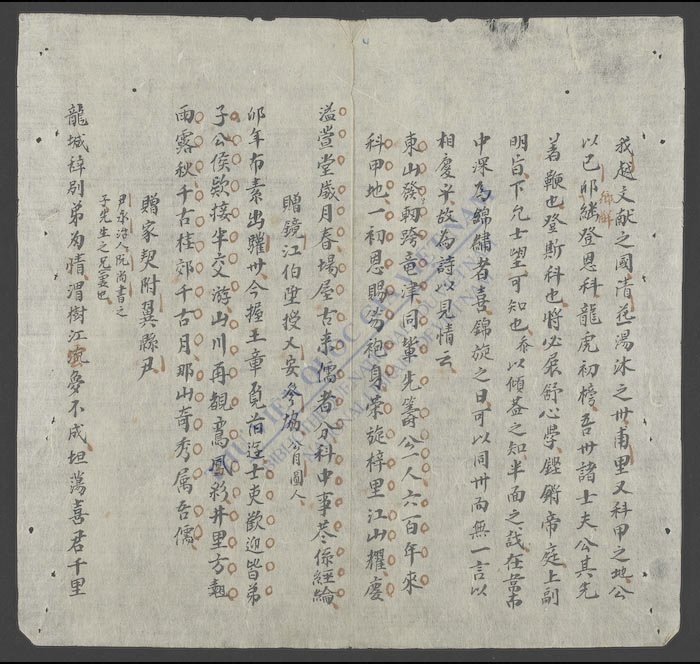 我越文献之國清花湯沐之丗甫里又科甲之地公
鄉解
以己卯継登恩科龍虎初榜吾丗諸士夫公其先
着鞭也登斯科也將必展舒心學鏗鏘帝庭上副
明旨下允士望可知也忝以傾盖之知半面之
中深為錦繡者喜錦旋之日可以同丗而無一言以
相慶乎故為詩以見情云
東山發軔跨竜津同軰先籌公一人六百年來
科甲地一初恩賜芴袍身荣旋梓里江山耀慶
溢萱堂歲月春場屋古来儒者分科中事荩係經綸
贈鏡江伯陞授乂安参協公月圓人
卯年布素出驩丗今握王章莧前迓士吏歡迎皆弟
子公侯欵接半交游山川再覩鸞鳳彩井里方翹
雨露秋千古桂郊千古月那山奇秀属吾儒
贈家契附翼縣尹
尹永治人阮尚書之
子先生之兄雲也
龍城綽别弟為情渭樹江雲夢不成坦蕩喜君千里